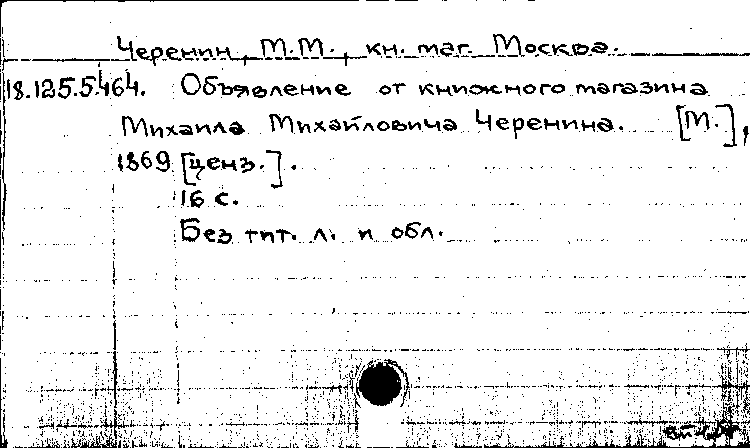 Черенин, М.М., кн. маг. Москва.
18.125.5.464. Объявление от книжного магазина
Михаила Михайловича Черенина. [М.],
1869 [ценз.].
16 с.
Без тит. л. и обл.